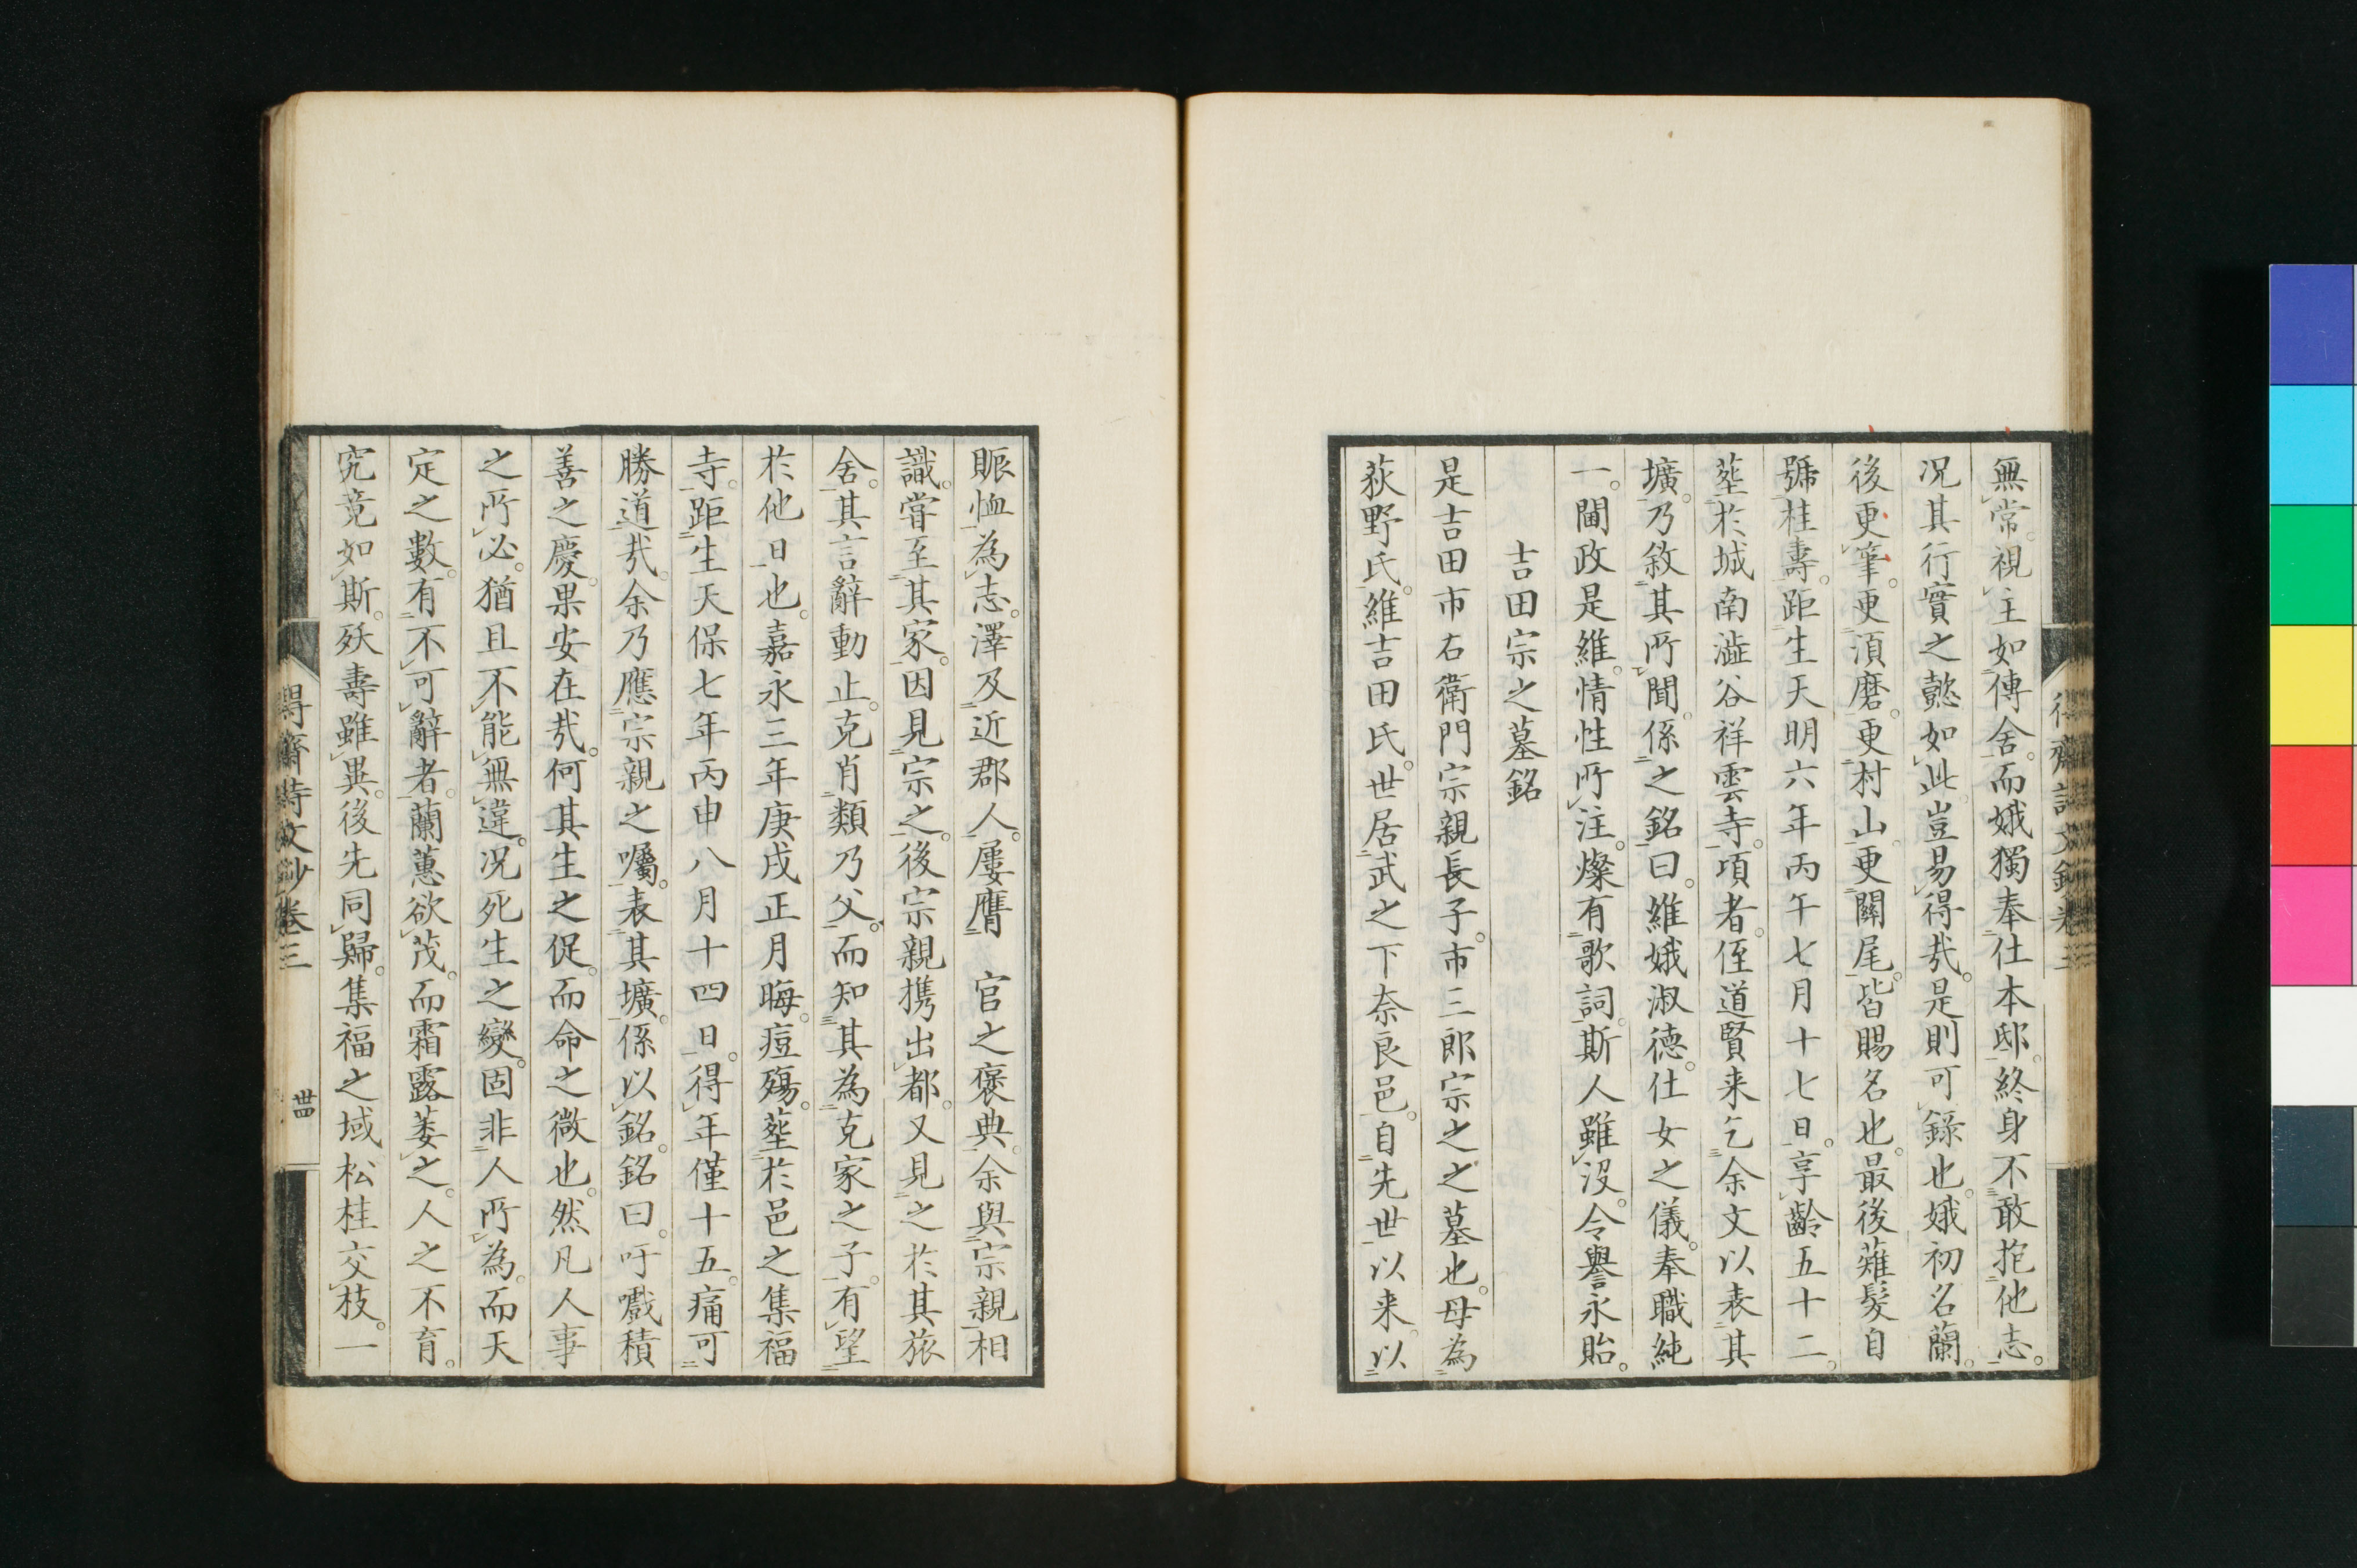 無常。視主如傳舍。而娥獨奉仕本邸。終身不敢抱他志。
况其行實之懿如此。豈易得㢤。是則可錄也。娥初名蘭。
後更筆。更須磨。更村山。更關尾。皆賜名也。最後薙髮自
號桂壽。距生天明六年丙午七月十七日。享齡五十二。
塟於城南澁谷祥雲寺。項者。侄道賢来乞余文以表其
壙。乃敘其所聞。係之銘曰。維娥淑德。仕女之儀。奉職純
一。閫政是維。情性所注。燦有歌詞。斯人雖沒。令譽永貽。
吉田宗之墓銘
是吉田市右衛門宗親長子。市三郎宗之之墓也。母為
荻野氏。維吉田氏。世居武之下奈良邑。自先世以来。以
賑恤為志。澤及近郡人。屢膺　官之褒典。余與宗親相
識。嘗至其家。因見宗之。後宗親携出都。又見之於其旅
舍。其言辭動止。克肖類乃父。而知其為克家之子。有望
於他日也。嘉永三年庚戌正月晦。痘殤。塟於邑之集福
寺。距生天保七年丙申八月十四日。得年僅十五。痛可
勝道㢤。余乃應宗親之囑。表其壙。係以銘。銘曰。吁嚱積
善之慶。果安在㢤。何其生之促。而命之微也。然凡人事
之所必。猶且不能無違。况死生之變。固非人所為。而天
定之數。有不可辭者。蘭蕙欲茂。而霜露萎之。人之不育。
究竟如斯。殀壽雖異。後先同歸。集福之域松桂交枝。一
得齋詩文鈔卷三
卌